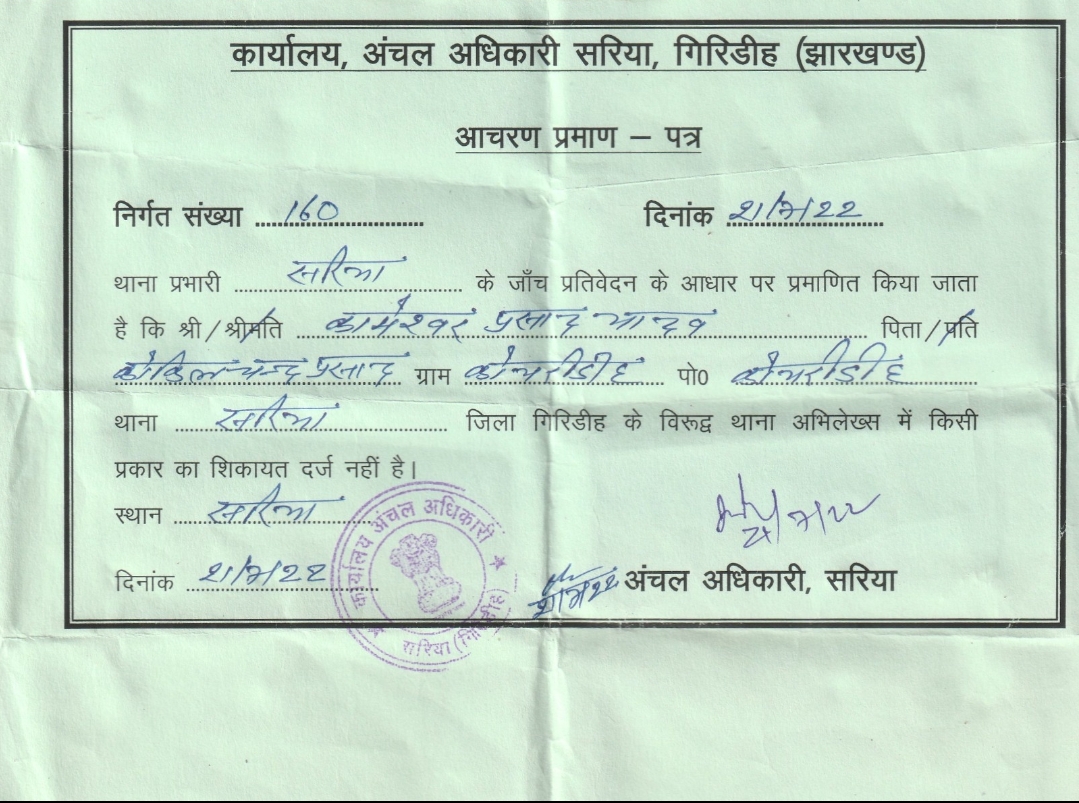 कार्यालय, अंचल अधिकारी सरिया, गिरिडीह (झारखण्ड)
आचरण प्रमाण – पत्र
निर्गत संख्या 160 दिनांक 21/7/22
थाना प्रभारी सरिया के जाँच प्रतिवेदन के आधार पर प्रमाणित किया जाता
है कि श्री/श्रीमति कामेश्वर प्रसाद यादव पिता/पति
कोकिलचन्द्र प्रसाद ग्राम कोयरीडीह पो0 कोयरीडीह
थाना सरिया जिला गिरिडीह के विरूद्व थाना अभिलेख्स में किसी
प्रकार का शिकायत दर्ज नहीं है।
स्थान सरिया
दिनांक 21/7/22
अंचल अधिकारी, सरिया
कार्यालय अंचल अधिकारी
सरिया (गिरिडीह)